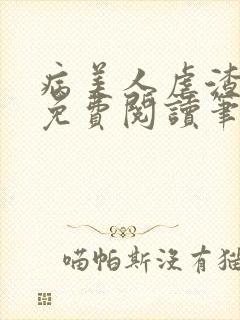 病美人虐渣
免費閱讀筆
喵帕斯沒有